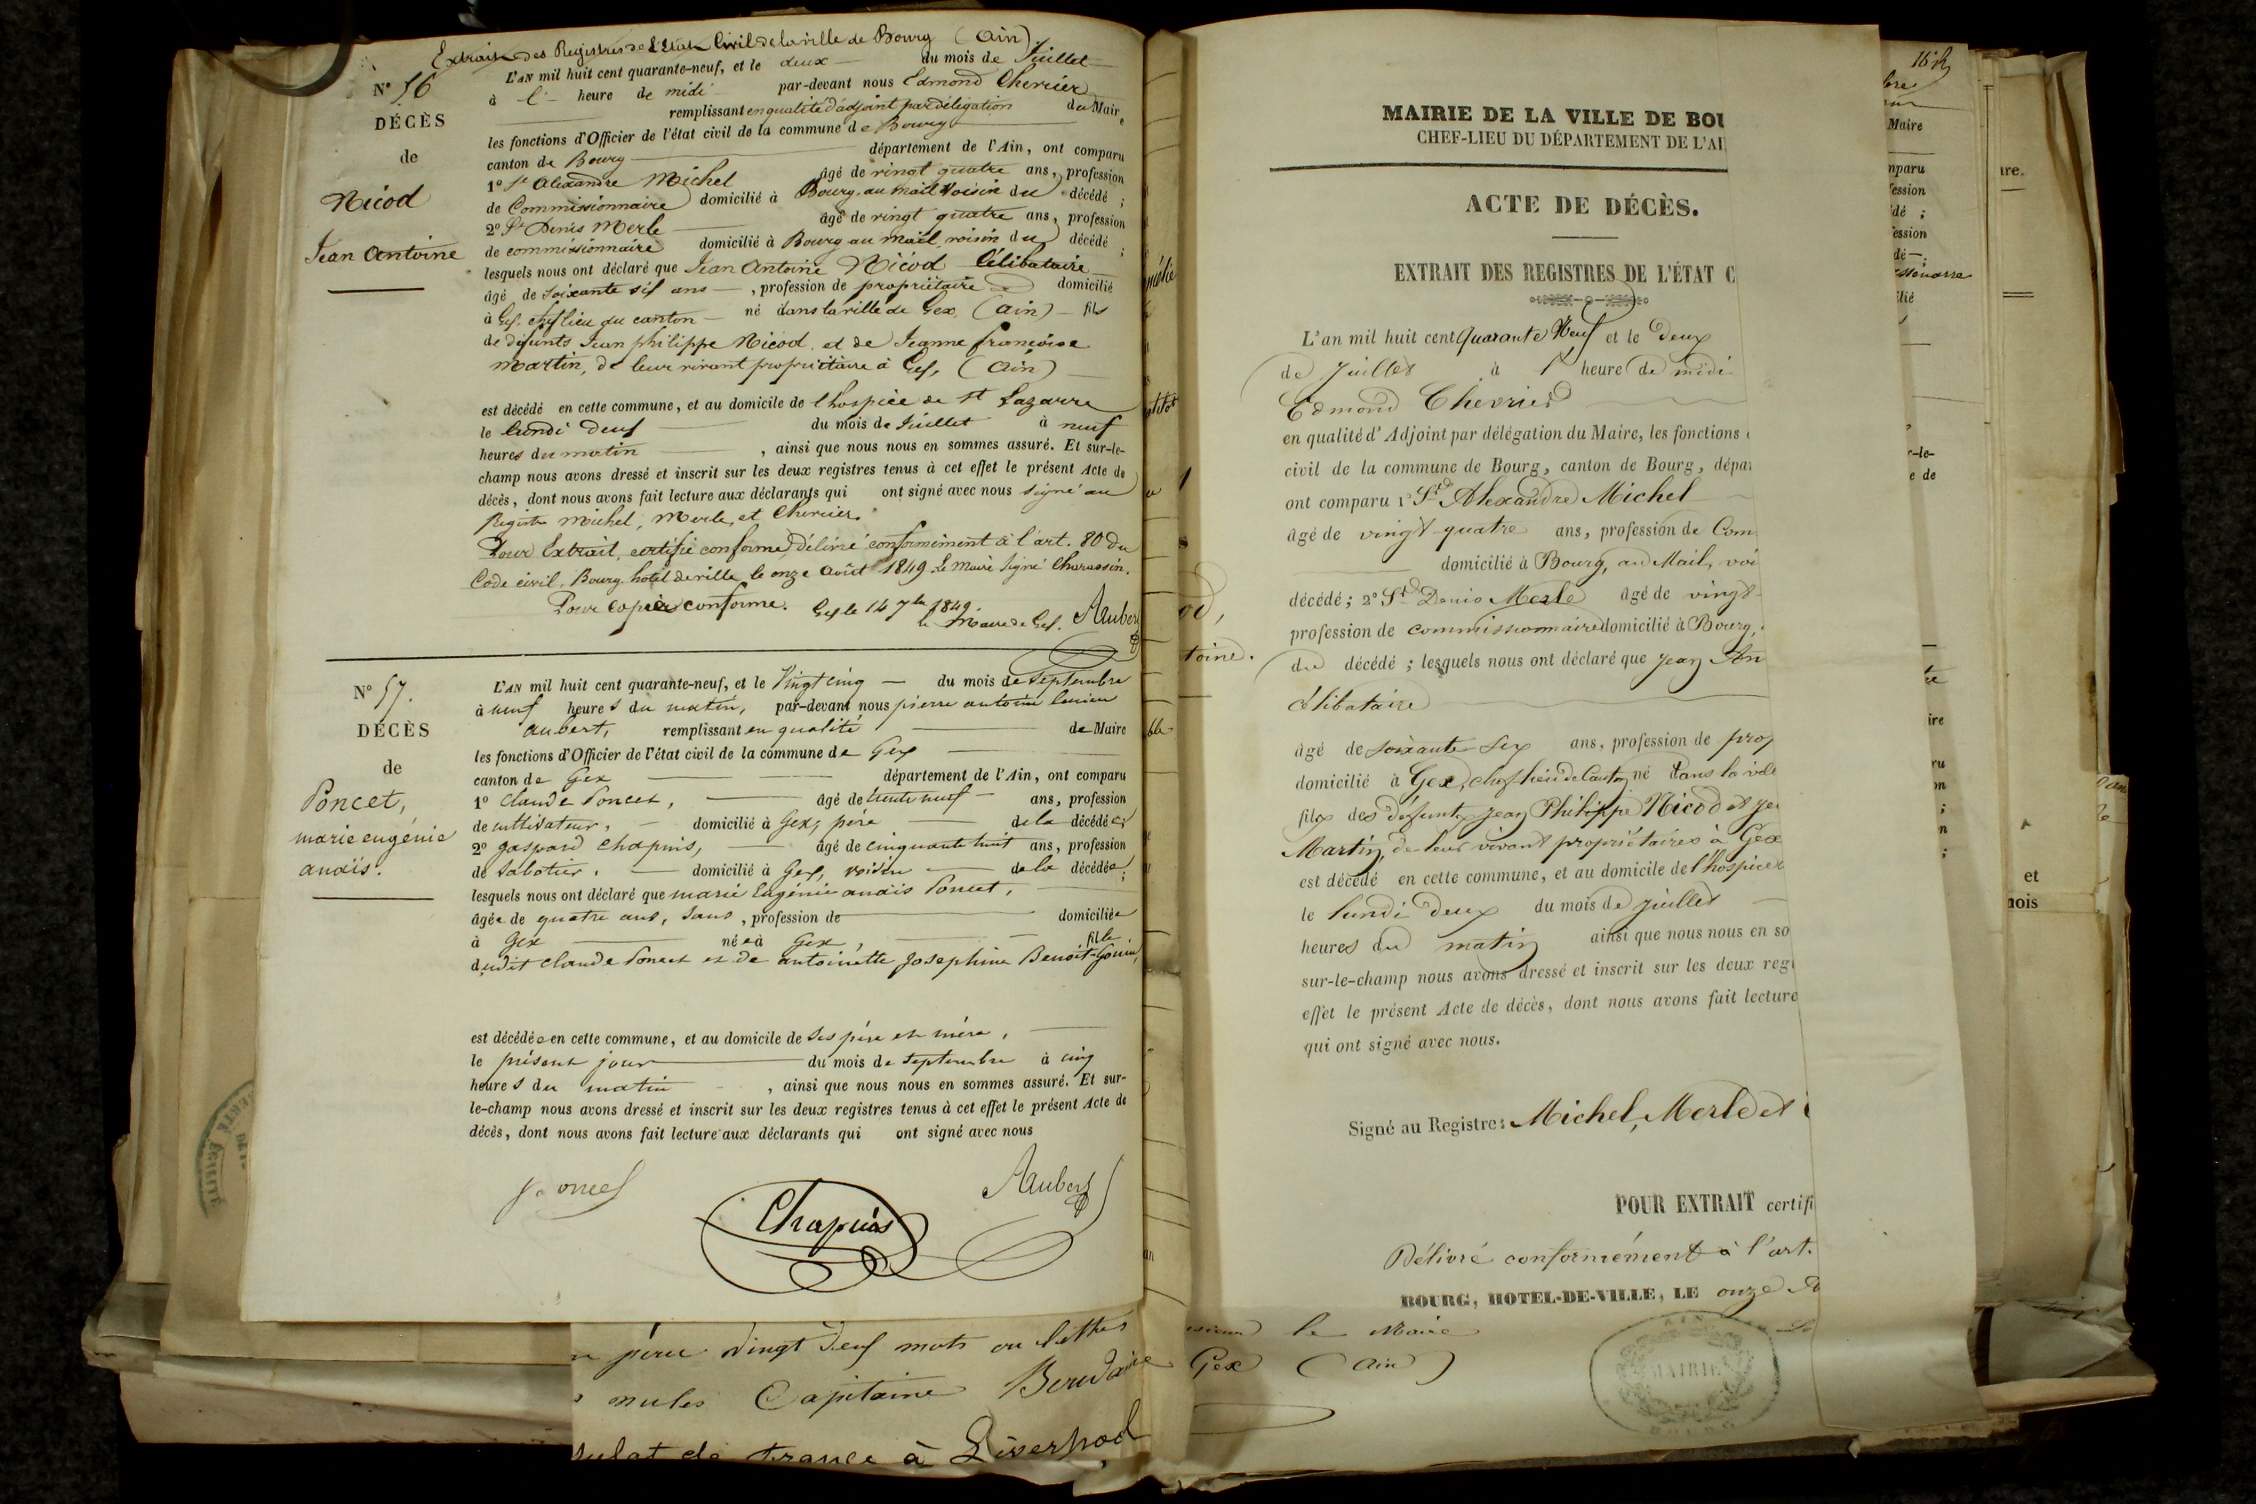 Extrait des Registres de l'État Civil de la ville de Bourg (Ain)
N° 56
DÉCÈS
de
Nicod
Jean Antoine
L'AN mil huit cent quarante-neuf, et le deux du mois de Juillet
à l' heure de midi par-devant nous Edmond Chevrier
remplissant en qualité d'adjoint par délégation du Maire
les fonctions d'Officier de l'état civil de la commune de Bourg
canton de Bourg département de l'Ain, ont comparu
1° St Alexandre Michel âgé de vingt quatre ans, profession
de Commissionnaire domicilié à Bourg, au mail voisin du décédé ;
2° St Denis Merle âgé de vingt quatre ans, profession
de commissionnaire domicilié à Bourg au mail, voisin du décédé ;
lesquels nous ont déclaré que Jean Antoine Nicod Célibataire
âgé de soixante six ans, profession de propriétaire domicilié
à Gex, chef lieu du canton né dans la ville de Gex, (Ain) fils
de défunts Jean philippe Nicod et de Jeanne françoise
Martin, de leur vivant propriétaire à Gex, (Ain)
est décédé en cette commune, et au domicile de l'hospice de St Lazarre
le lundi deux du mois de Juillet à neuf
heures du matin, ainsi que nous nous en sommes assuré. Et sur-le-
champ nous avons dressé et inscrit sur les deux registres tenus à cet effet le présent Acte de
décès, dont nous avons fait lecture aux déclarants qui ont signé avec nous signé au
Registre Michel, Merle, et Chevrier.
Pour Extrait, certifié conforme Délivré conformément à l'art. 80 du
Code civil, Bourg, hôtel de ville, le onze Août 1849 Le Maire signé Charassin.
Pour copie conforme. Gex le 14 7bre 1849.
le Maire de Gex. Aubert
N° 57.
DÉCÈS
de
Poncet,
marie eugénie
anaïs.
L'AN mil huit cent quarante-neuf, et le Vingt cinq du mois de Septembre
à neuf heures du matin, par-devant nous pierre antoine lucien
aubert, remplissant en qualité de Maire
les fonctions d'Officier de l'état civil de la commune de Gex
canton de Gex département de l'Ain, ont comparu
1° Claude Poncet, âgé de trente neuf ans, profession
de cultivateur, domicilié à Gex, père de la décédée ;
2° gaspard Chapuis, âgé de cinquante huit ans, profession
de Sabotier, domicilié à Gex, voisin de la décédée ;
lesquels nous ont déclaré que marie Eugénie anaïs Poncet,
âgée de quatre ans, sans, profession de domiciliée
à Gex née à Gex fille
dudit Claude Poncet et de antoinette Josephine Benoit-Gonin,
est décédée en cette commune, et au domicile de ses père et mère,
le présent jour du mois de septembre à cinq
heures du matin, ainsi que nous nous en sommes assuré. Et sur-
le-champ nous avons dressé et inscrit sur les deux registres tenus à cet effet le présent Acte de
décès, dont nous avons fait lecture aux déclarants qui ont signé avec nous
Poncet
Chapuis
Aubert
vingt deux mots ou lettres
nules Capitaine
de France à Liverpool
MAIRIE DE LA VILLE DE BOU
CHEF-LIEU DU DÉPARTEMENT DE L'AI
ACTE DE DÉCÈS.
EXTRAIT DES REGISTRES DE L'ÉTAT C
L'an mil huit cent Quarante Neuf et le Deux
de Juillet à 1' heure de midi
Edmond Chevrier
en qualité d'Adjoint par délégation du Maire, les fonctions
civil de la commune de Bourg, canton de Bourg, dépar
ont comparu 1° St Alexandre Michel
âgé de vingt-quatre ans, profession de Com
domicilié à Bourg, au Mail, voi
décédé ; 2° St Denis Merle âgé de vingt-
profession de commissionnaire domicilié à Bourg,
du décédé ; lesquels nous ont déclaré que Jean An
célibataire
âgé de soixante-six ans, profession de prop
domicilié à Gex, chef-lieu de Canton, né dans la vill
fils des défunts Jean Philippe Nicod et Je
Martin, de leur vivant propriétaires à Gex
est décédé en cette commune, et au domicile de l'hospice
le lundi deux du mois de juillet
heures du matin ainsi que nous nous en so
sur-le-champ nous avons dressé et inscrit sur les deux regi
effet le présent Acte de décès, dont nous avons fait lecture
qui ont signé avec nous.
Signé au Registre : Michel, Merle et
POUR EXTRAIT certifi
Délivré conformément à l'art.
BOURG, HOTEL-DE-VILLE, LE onze A
le Maire
Gex (Ain)
MAIRIE
Maire
et